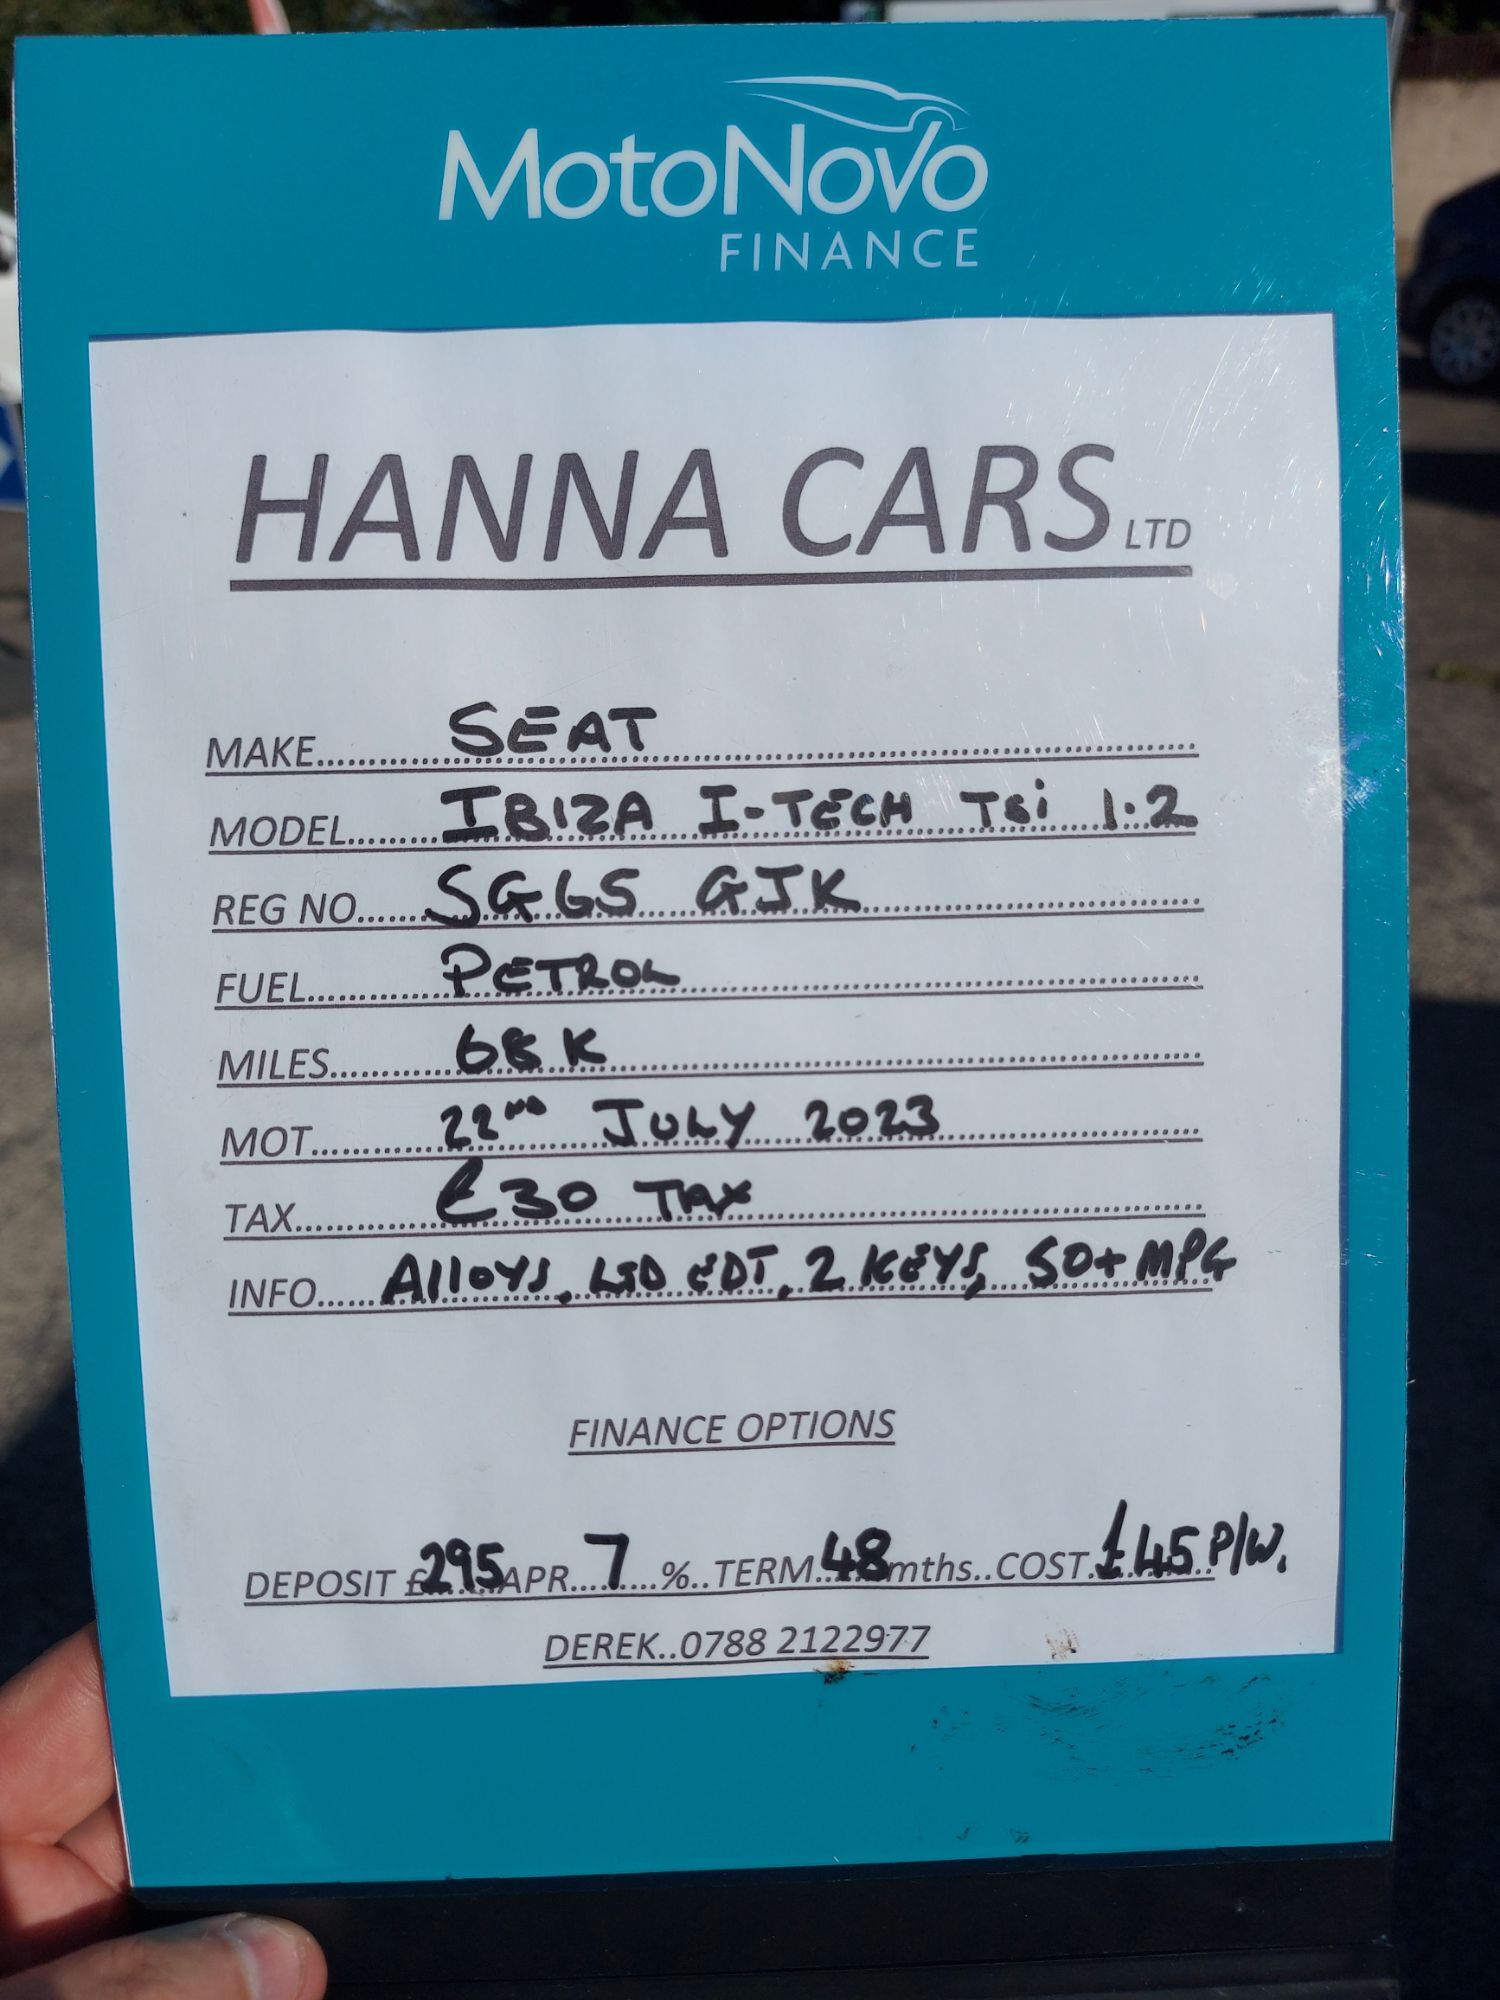 MotoNovo
FINANCE
HANNA CARS LTD
MAKE.......SEAT.......
MODEL.......IBIZA I-TECH TSi 1.2
REG NO.......SG65 GJK.......
FUEL.......PETROL.......
MILES.......68K.......
MOT.......22ND JULY 2023.......
TAX.......£30 TAX.......
INFO......Alloys, LTD EDT, 2 KEYS, 50+ MPG
FINANCE OPTIONS
DEPOSIT £295 APR...7...%..TERM..48 mths..COST.£45 P/W.
DEREK..0788 2122977